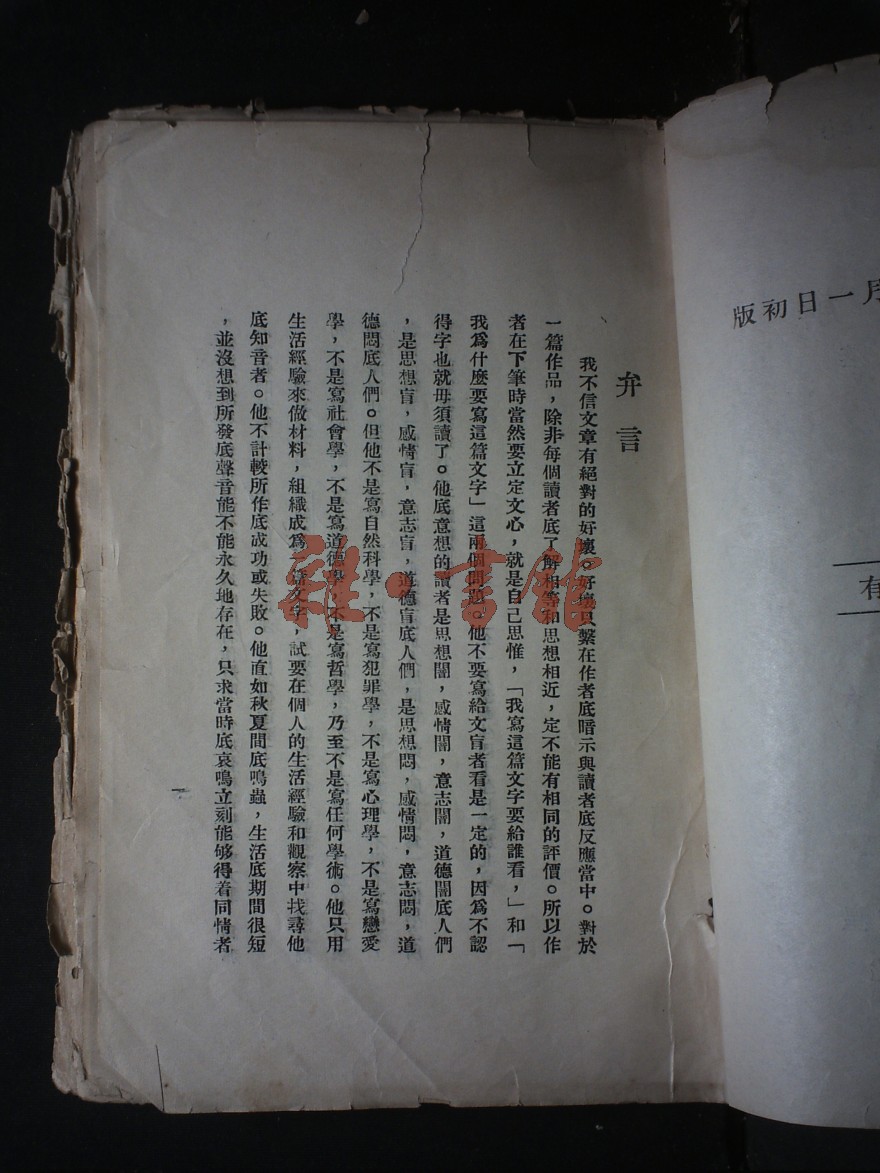 弁言
我不信文章有絕對的好壞。好壞只繫在作者底暗示與讀者底反應當中。對於
一篇作品，除非每個讀者底了解相等和思想相近，定不能有相同的評價。所以作
者在下筆時當然要立定文心，就是自己思惟，「我寫這篇文字要給誰看，」和「
我為什麼要寫這篇文字」這兩個問題。他不要寫給文盲者看是一定的，因為不認
得字也就毋須讀了。他底意想的讀者是思想闇，感情闇，意志闇，道德闇底人們
，是思想盲，感情盲，意志盲，道德盲底人們，是思想悶，感情悶，意志悶，道
德悶底人們。但他不是寫自然科學，不是寫犯罪學，不是寫心理學，不是寫戀愛
學，不是寫社會學，不是寫道德學，不是寫哲學，乃至不是寫任何學術。他只用
生活經驗來做材料，組織成為一篇文字，試要在個人的生活經驗和觀察中找尋他
底知音者。他不計較所作底成功或失敗。他直如秋夏間底鳴蟲，生活底期間很短
，並沒想到所發底聲音能不能永久地存在，只求當時底哀鳴立刻能够得着同情者
一
月一日初版
有
雜·書館